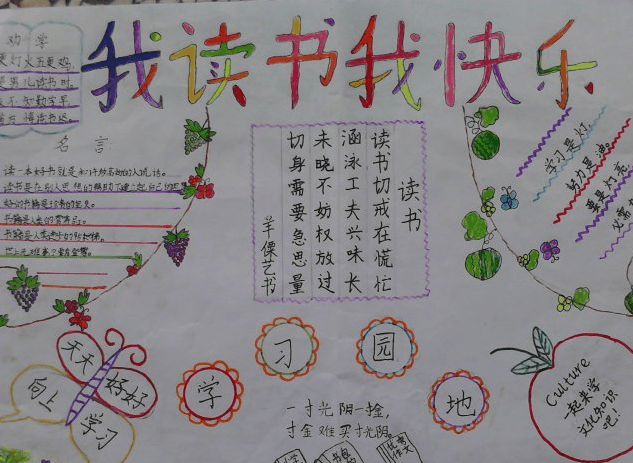 我读书我快乐
劝学
更灯火五更鸡
是男儿读书时
不知勤学早
方悔读书迟
名言
读一本好书就是和许多高尚的人说话。
读书是在别人思想的帮助下建立起自己的思
书籍是人类进步的阶梯。
读书
读书切戒在慌忙
涵泳工夫兴味长
未晓不妨权放过
切身需要急思量
学习是灯
努力是油。
要是灯亮
天天
好好
向上
学习
学
习
园
地
一寸光阴一寸金,
寸金难买寸光阴。
Culture
一起来学
文化知识
吧!